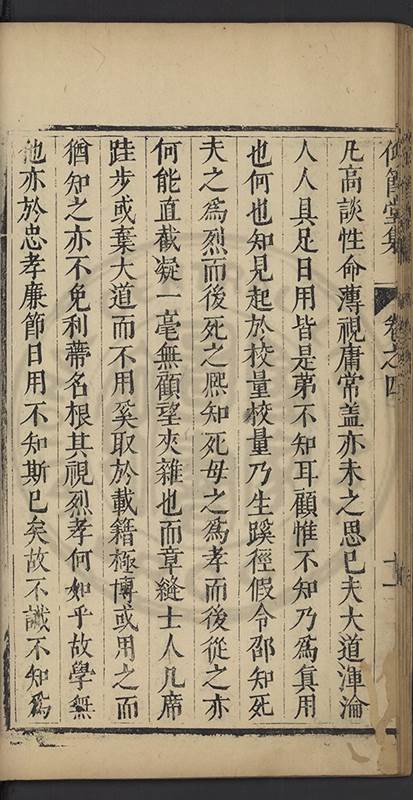 仰節堂集 卷之四 十一
凡高談性命薄視庸常盖亦未之思已夫大道渾淪
人人具足日用皆是第不知耳顧惟不知乃爲眞用
也何也知見起於校量校量乃生蹊徑假令邵知死
夫之爲烈而後死之熙知死母之爲孝而後從之亦
何能直截凝一毫無顧望夾雜也而章縫士人凡席
跬步或棄大道而不用奚取於載籍極博或用之而
猶知之亦不免利蔕名根其視烈孝何如乎故學無
他亦於忠孝廉節日用不知斯已矣故不識不知爲